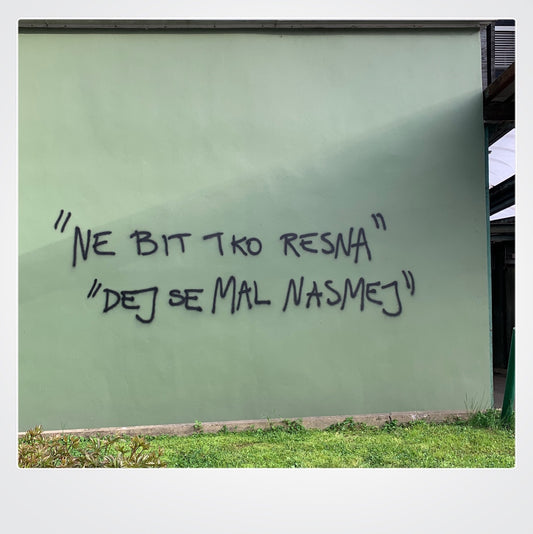 "NE BIT TKO RESNA"
"DEJ SE MAL NASMEJ"